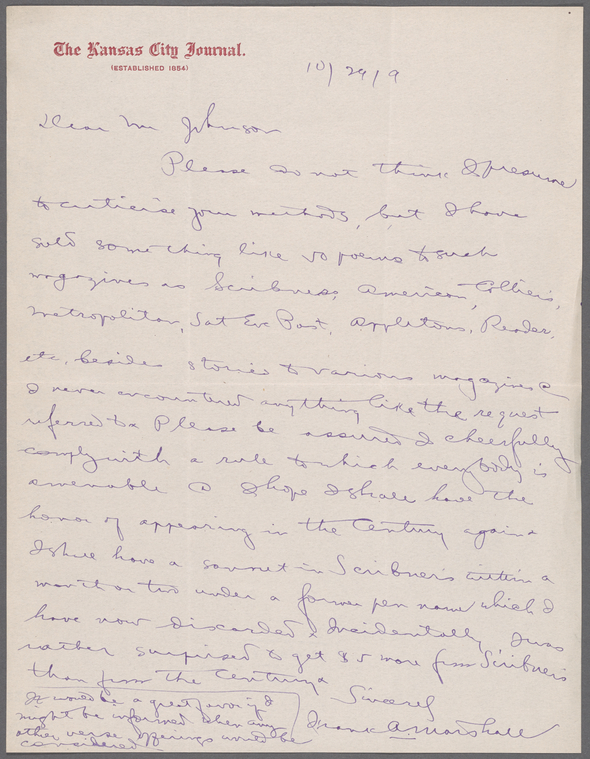 The Kansas City Journal.
(ESTABLISHED 1854)
10/29/9
Dear Mr Johnson
Please do not think I presume
to criticise your methods, but I have
sold something like 50 poems to such
magazines as Scribners, American, Colliers,
Metropolitan, Sat Eve Post, Appletons, Reader,
etc, besides stories to various magazines &
I never encountered anything like the request
referred to x Please be assured I cheerfully
comply with a rule to which everybody is
amenable & I hope I shall have the
honor of appearing in the Century again x
I shall have a sonnet in Scribner's within a
month or two under a former pen name which I
have now discarded x Incidentally I was
rather surprised to get $5 more from Scribners
than from the Century x
Sincerely
Frank A Marshall
It would be a great favor if I
might be informed when any
other verse offerings would be
considered